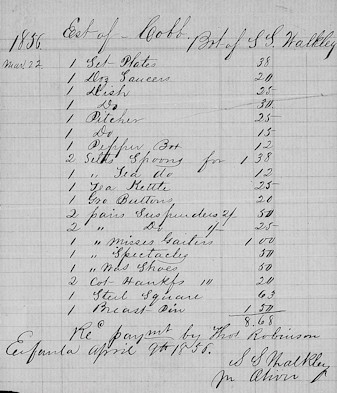 1856 Est of Cobb Bot of S. S. Walkley
Mar 22 1 Set Plates 38
1 Doz Saucers 20
1 Dish 25
1 Do 30
1 Pitcher 25
1 Do 15
1 Pepper Box 12
2 Setts Spoons for 1 38
1 " Tea do 12
1 Tea Kettle 25
1 Gro Buttons 20
2 pairs Suspenders 50
2 " Do 25
1 " Misses Garters 1 00
1 " Spectacles 50
1 " Shoes 50
2 Cot Hankfs 10 20
1 Steel Square 63
1 Breast Pin 1 50
8.68
Recd paymt by Thos Robinson
Eufaula April 9th
S S Walkley